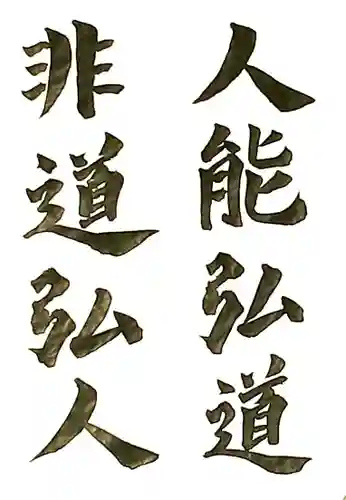 人能弘道
非道弘人